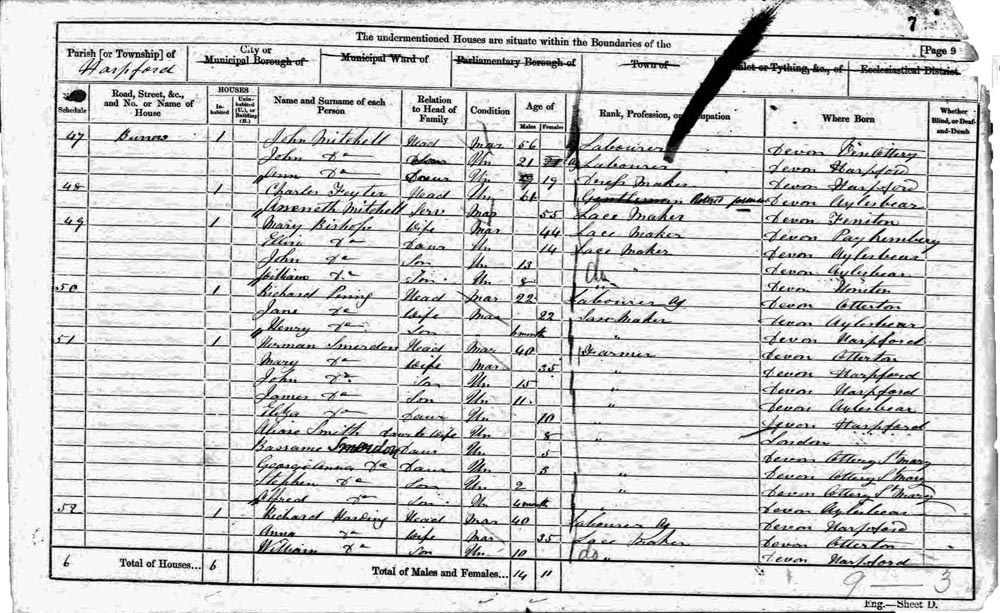 7
The undermentioned Houses are situate within the Boundaries of the
[Page 9
Parish [or Township] of
Harpford
City or
Municipal Borough of
Municipal Ward of
Parliamentary Borough of
Town of
Hamlet or Tything, &c., of
Ecclesiastical District
Schedule
Road, Street, &c., and No. or Name of House
HOUSES
Inhabited
Uninhabited (U.), or Building (B.)
Name and Surname of each Person
Relation to Head of Family
Condition
Age of
Males
Females
Rank, Profession, or Occupation
Where Born
Whether Blind, or Deaf-and-Dumb
47 1 John Mitchell Head Mar 56 Labourer Devon
John Do Son Un 21 Ag Labourer Devon Harpford
Ann Do Daur Un 19 Dress Maker Devon Harpford
48 1 Charles Head Un 61 Gentleman Devon Aylesbear
Mitchell Serv Mar 55 Lace Maker Devon Feniton
49 1 Mary Bishop Wife Mar 44 Lace Maker Devon Payhembury
Do Daur Un 14 Lace Maker Devon Aylesbear
John Do Son Un 13 do Devon Aylesbear
William Do Son Un 8 " Devon Honiton
50 1 Richard Head Mar 22 Labourer Ag Devon Otterton
Jane Do Wife Mar 22 Maker Devon Aylesbear
Henry Do Son 6 month Devon Harpford
51 1 Smerdon Head Mar 40 Farmer Devon Otterton
Mary Do Wife Mar 35 " Devon Harpford
John Do Son Un 15 Devon Harpford
James Do Son Un 11 " Devon Aylesbear
Eliza Do Daur Un 10 Devon Harpford
Smith Daur to Wife Un 8 " London
Smerdon Daur Un 5 Devon Ottery St Mary
Georgeanna Do Daur Un 3 " Devon Ottery St Mary
Stephen Do Son Un 2 " Devon Ottery St Mary
Alfred Do Son Un 4 month Devon Aylesbear
52 1 Richard Harding Head Mar 40 Labourer Ag Devon Harpford
Anna Do Wife Mar 35 Lace Maker Devon Otterton
William Do Son Un 10 do " Devon Harpford
6 Total of Houses... 6 Total of Males and Females... 14 11
9 — 3
Eng.—Sheet D.